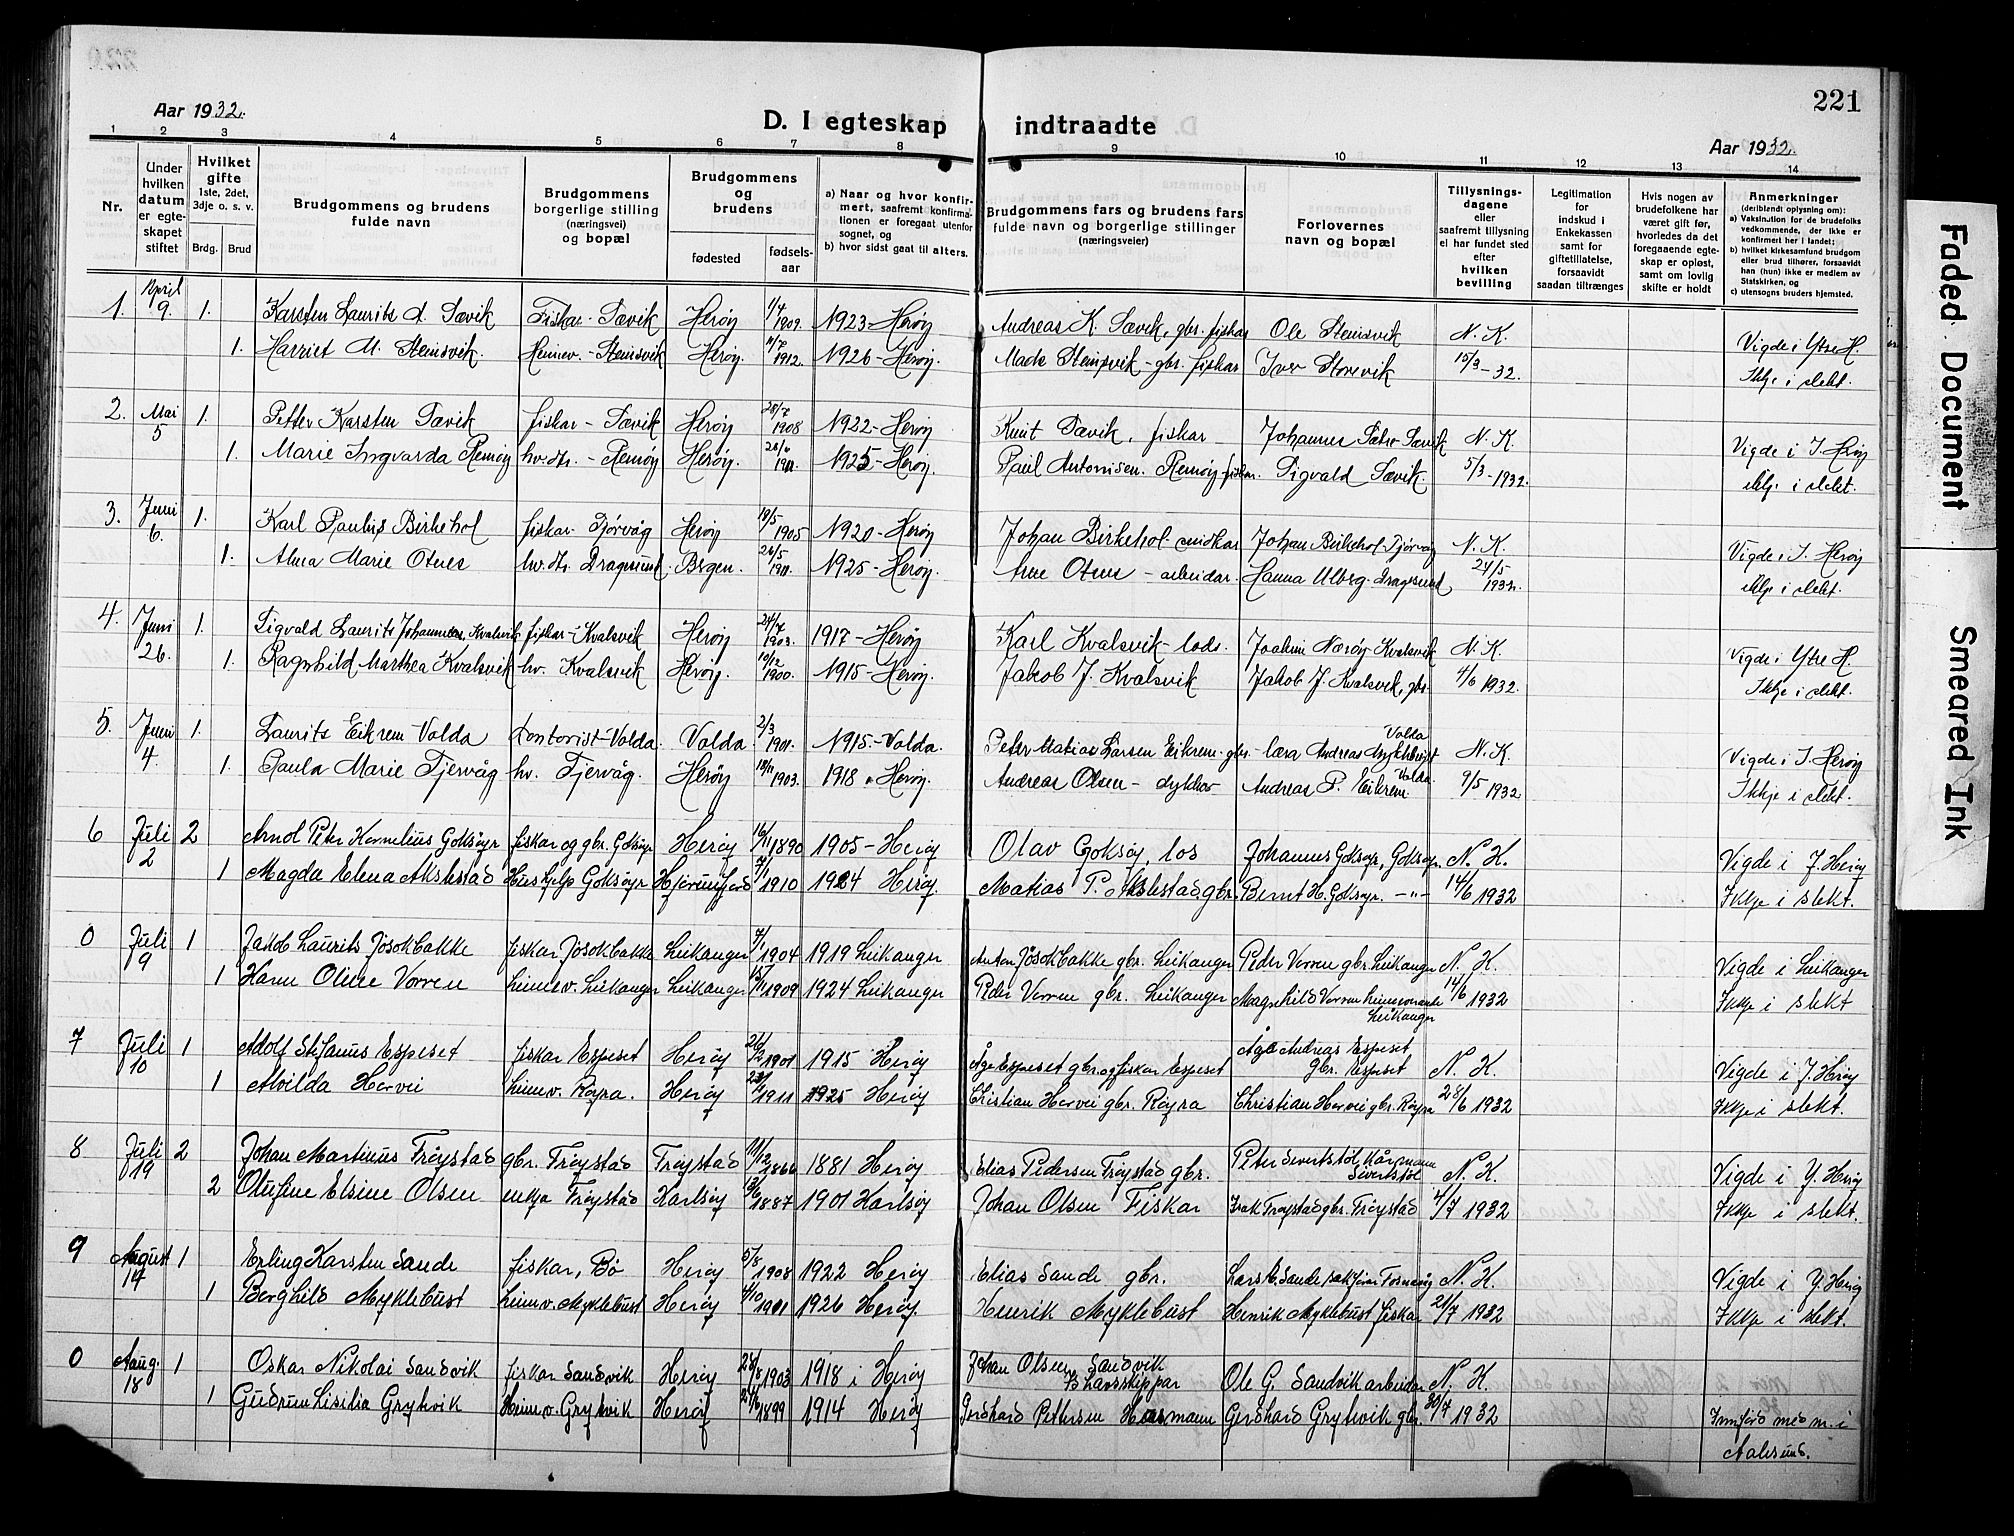 221
Aar 1932.
D. I egteskap indtraadte
Aar 1932.
1 2 3 4 5 6 7 8 9 10 11 12 13 14
Nr.
Under hvilken datum er egteskapet stiftet
Hvilket gifte 1ste, 2det, 3dje o. s. v.
Brdg. Brud
Brudgommens og brudens fulde navn
Brudgommens borgerlige stilling (næringsvei) og bopæl
Brudgommens og brudens
fødested
fødselsaar
a) Naar og hvor konfirmert, saafremt konfirmationen er foregaat utenfor sognet, og
b) hvor sidst gaat til alters.
Brudgommens fars og brudens fars fulde navn og borgerlige stillinger (næringsveier)
Forlovernes navn og bopæl
Tillysningsdagene eller saafremt tillysning ei har fundet sted efter hvilken bevilling
Legitimation for indskud i Enkekassen samt for giftetillatelse, forsaavidt saadan tiltrænges
Hvis nogen av brudefolkene har været gift før, hvorledes da det foregaaende egteskap er opløst, samt om lovlig skifte er holdt
Anmerkninger (deriblendt oplysning om):
a) Vaksination for de brudefolks vedkommende, der ikke er konfirmert her i landet;
b) hvilket kirkesamfund brudgom eller brud tilhører, forsaavidt han (hun) ikke er medlem av Statskirken, og
c) utensogns bruders hjemsted.
1. April 9. 1. Karsten Laurits A. Sævik Fiskar - Sævik Herøy 1/4 1909. 1923 - Herøy Andreas K. Sævik, gbr. fiskar Ole Stemsvik N. K. Vigde i Ytre H.
1. Harriet M. Stemsvik. Heimev. - Stemsvik Herøy. 11/7 1912. 1926 - Herøy. Mads Stemsvik - gbr. fiskar Iver Storevik 15/3 - 32. Ikkje i slekt.
2. Mai 5 1. Petter Karsten Sævik fiskar - Sævik Herøy 28/7 1908 1922 - Herøy Knut Sævik, fiskar Johannes Sætre Sævik N. K. Vigde i I. Herøy
1. Marie Ingvarda Remøy hv.dtr. - Remøy Herøy. 1911. 1925 - Herøy. Paul Antonisen Remøy - fiskar. Sigvald Sævik. 5/3 - 1932. ikkje i slekt.
3. Juni 6. 1. Karl Paulus Birkehol fiskar Tjørvåg Herøy 19/5 1905 1920 - Herøy Johan Birkehol smidkar Johan Birkehol Tjørvåg N. K. Vigde i I. Herøy
1. Alma Marie Otnes hv.dtr. Dragsund. Bergen. 26/5 1911. 1925 - Herøy. Arne Otnes - arbeidar Hanna Ulberg - Dragsund 24/5 1932. ikkje i slekt.
4. Juni 26. 1. Sigvald Laurits Johannes Kvalsvik fiskar - Kvalsvik Herøy 24/7 1903. 1917 - Herøy Karl Kvalsvik - lods. Joakim Nærøy Kvalsvik N. K. Vigde i Ytre H.
1. Ragnhild Marthea Kvalsvik hv. Kvalsvik Herøy. 10/12 1900. 1915 - Herøy. Jakob J. Kvalsvik Jakob J. Kvalsvik, gbr. 4/6 1932. Ikkje i slekt.
5. Juni 4. 1. Laurits Eikrem Volda Kontorist - Volda. Volda. 2/3 1901. 1915. - Volda. Peter Matias Larsen Eikrem - gbr. - Lars Andreas Myklebust Volda N. K. Vigde i I. Herøy
1. Paula Marie Tjervåg hv. Tjervåg. Herøy 18/11 1903. 1918 - Herøy. Andreas Olsen - dykkar Andreas P. Eikrem Volda 9/5 1932 Ikkje i slekt.
6 Juli 2 2 Arnol Peter Kornelius Goksøyr fiskar og gbr. Goksøyr Herøy 16/11 1890 1905 - Herøy Olav Goksøy, los Johannes Goksøyr, Goksøyr. N. K. Vigde i I. Herøy
1 Magda Elena Akslestad Hushjelp Goksøyr Hjørundfjord 7/1 1910 1924 Herøy. Matias P. Akslestad gbr. Bernt H. Goksøyr. -"- 14/6 1932 Ikkje i slekt.
0 Juli 9 1 Jakob Laurits Jøsokbakke fiskar Jøsokbakke Leikanger 7/1 1904 1919 Leikanger Anton Jøsokbakke gbr. Leikanger Peder Vorren gbr. Leikanger N. K. Vigde i Leikanger
1 Karen Oline Vorren heimev. Leikanger Leikanger 1909 1924 Leikanger Peder Vorren gbr. Leikanger Magnhild Vorren heimeværande Leikanger 14/6 1932 Ikkje i slekt
7 Juli 10 1 Adolf Stefanus Espeset fiskar Espeset Herøy 26/2 1901 1915 Herøy Åge Espeset gbr. og fiskar Espeset Åge Andreas Espeset gbr. Espeset N. K. Vigde i I. Herøy
1 Alvilda Hervei heimev. Røyra. Herøy 1911 1925 Herøy Christian Hervei gbr. Røyra Christian Hervei gbr. Røyra 28/6 1932 Ikkje i slekt.
8 Juli 19 2 Johan Martinus Frøystad gbr. Frøystad Frøystad 11/12 1866 1881 Herøy Elias Pedersen Frøystad gbr. Peter Sivertstøl Kårmann Sivertstøl N. K. Vigde i Y. Herøy
2 Olufine Elsine Olsen enkja Frøystad Karlsøy 1887 1901 Karlsøy Johan Olsen Fiskar Isak Frøystad gbr. Frøystad 4/7 1932 Ikkje i slekt.
9 August 14 1 Erling Karsten Sande fiskar, Bø Herøy 5/8 1908 1922 Herøy Elias Sande gbr. Lars E. Sande Fosnavåg N. K. Vigde i Y. Herøy
1 Borghild Myklebust heimev. Myklebust Herøy 1911 1926 Herøy Henrik Myklebust Henrik Myklebust fiskar 21/7 1932 Ikkje i slekt.
0 Aug. 18 1 Oskar Nikolai Sandvik fiskar Sandvik Herøy 28/8 1903 1918 i Herøy Johan Olsen Sandvik Ole G. Sandvik arbeidar N. K.
1 Gudrun Lisilia Grytvik Heimev. Grytvik Herøy 1899 1914 Herøy Gerdhard Pettersen Gerdhard Grytvik gbr. 30/7 1932 Innførd med m. i Aalesund.
Faded Document
Smeared Ink